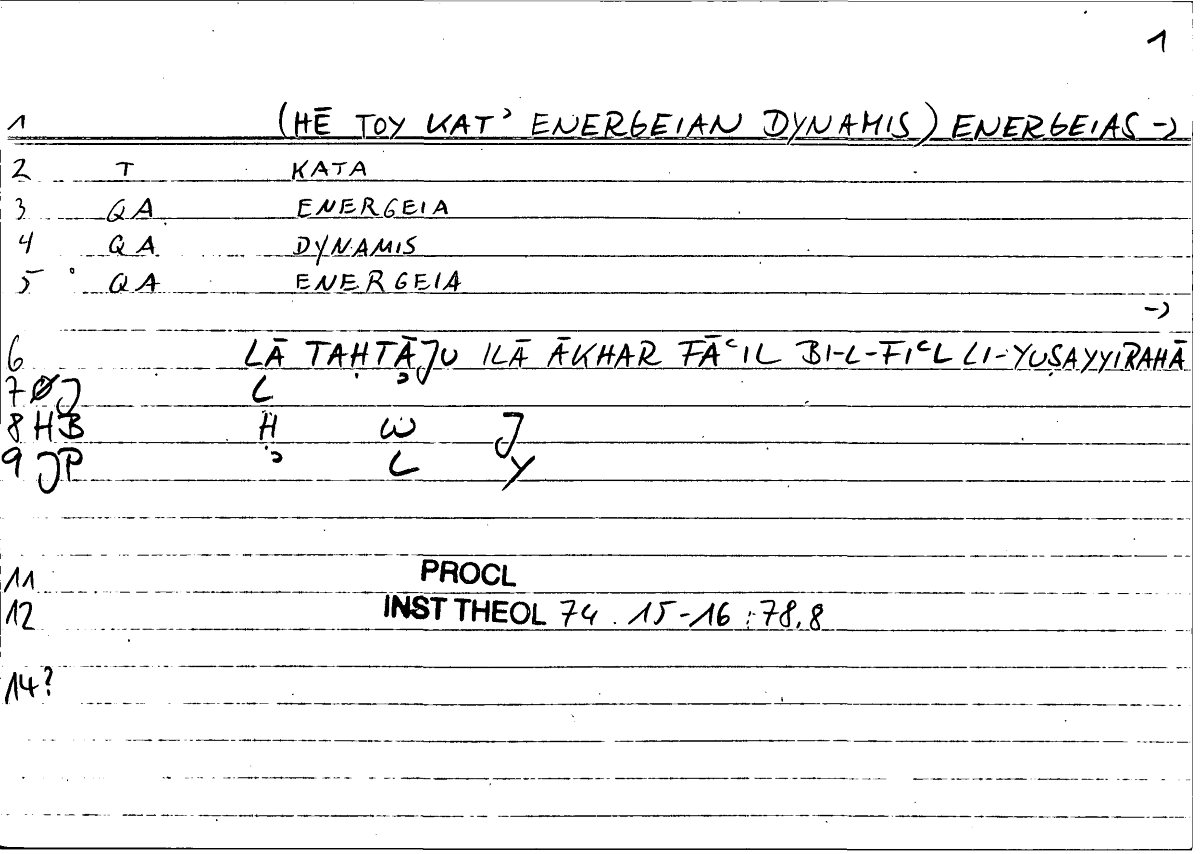 1
1 (HĒ TOY KAT' ENERGEIAN DYNAMIS) ENERGEIAS ->
2 T KATA
3 QA ENERGEIA
4 QA DYNAMIS
5 QA ENERGEIA
->
6 LĀ TAḤTĀJU ILĀ ĀKHAR FĀʿIL BI-L-FIʿL LI-YUṢAYYIRAHĀ
7 ØJ L
8 HB H W J
9 JP ' L Y
11 PROCL
12 INST THEOL 74.15-16:78,8
14?